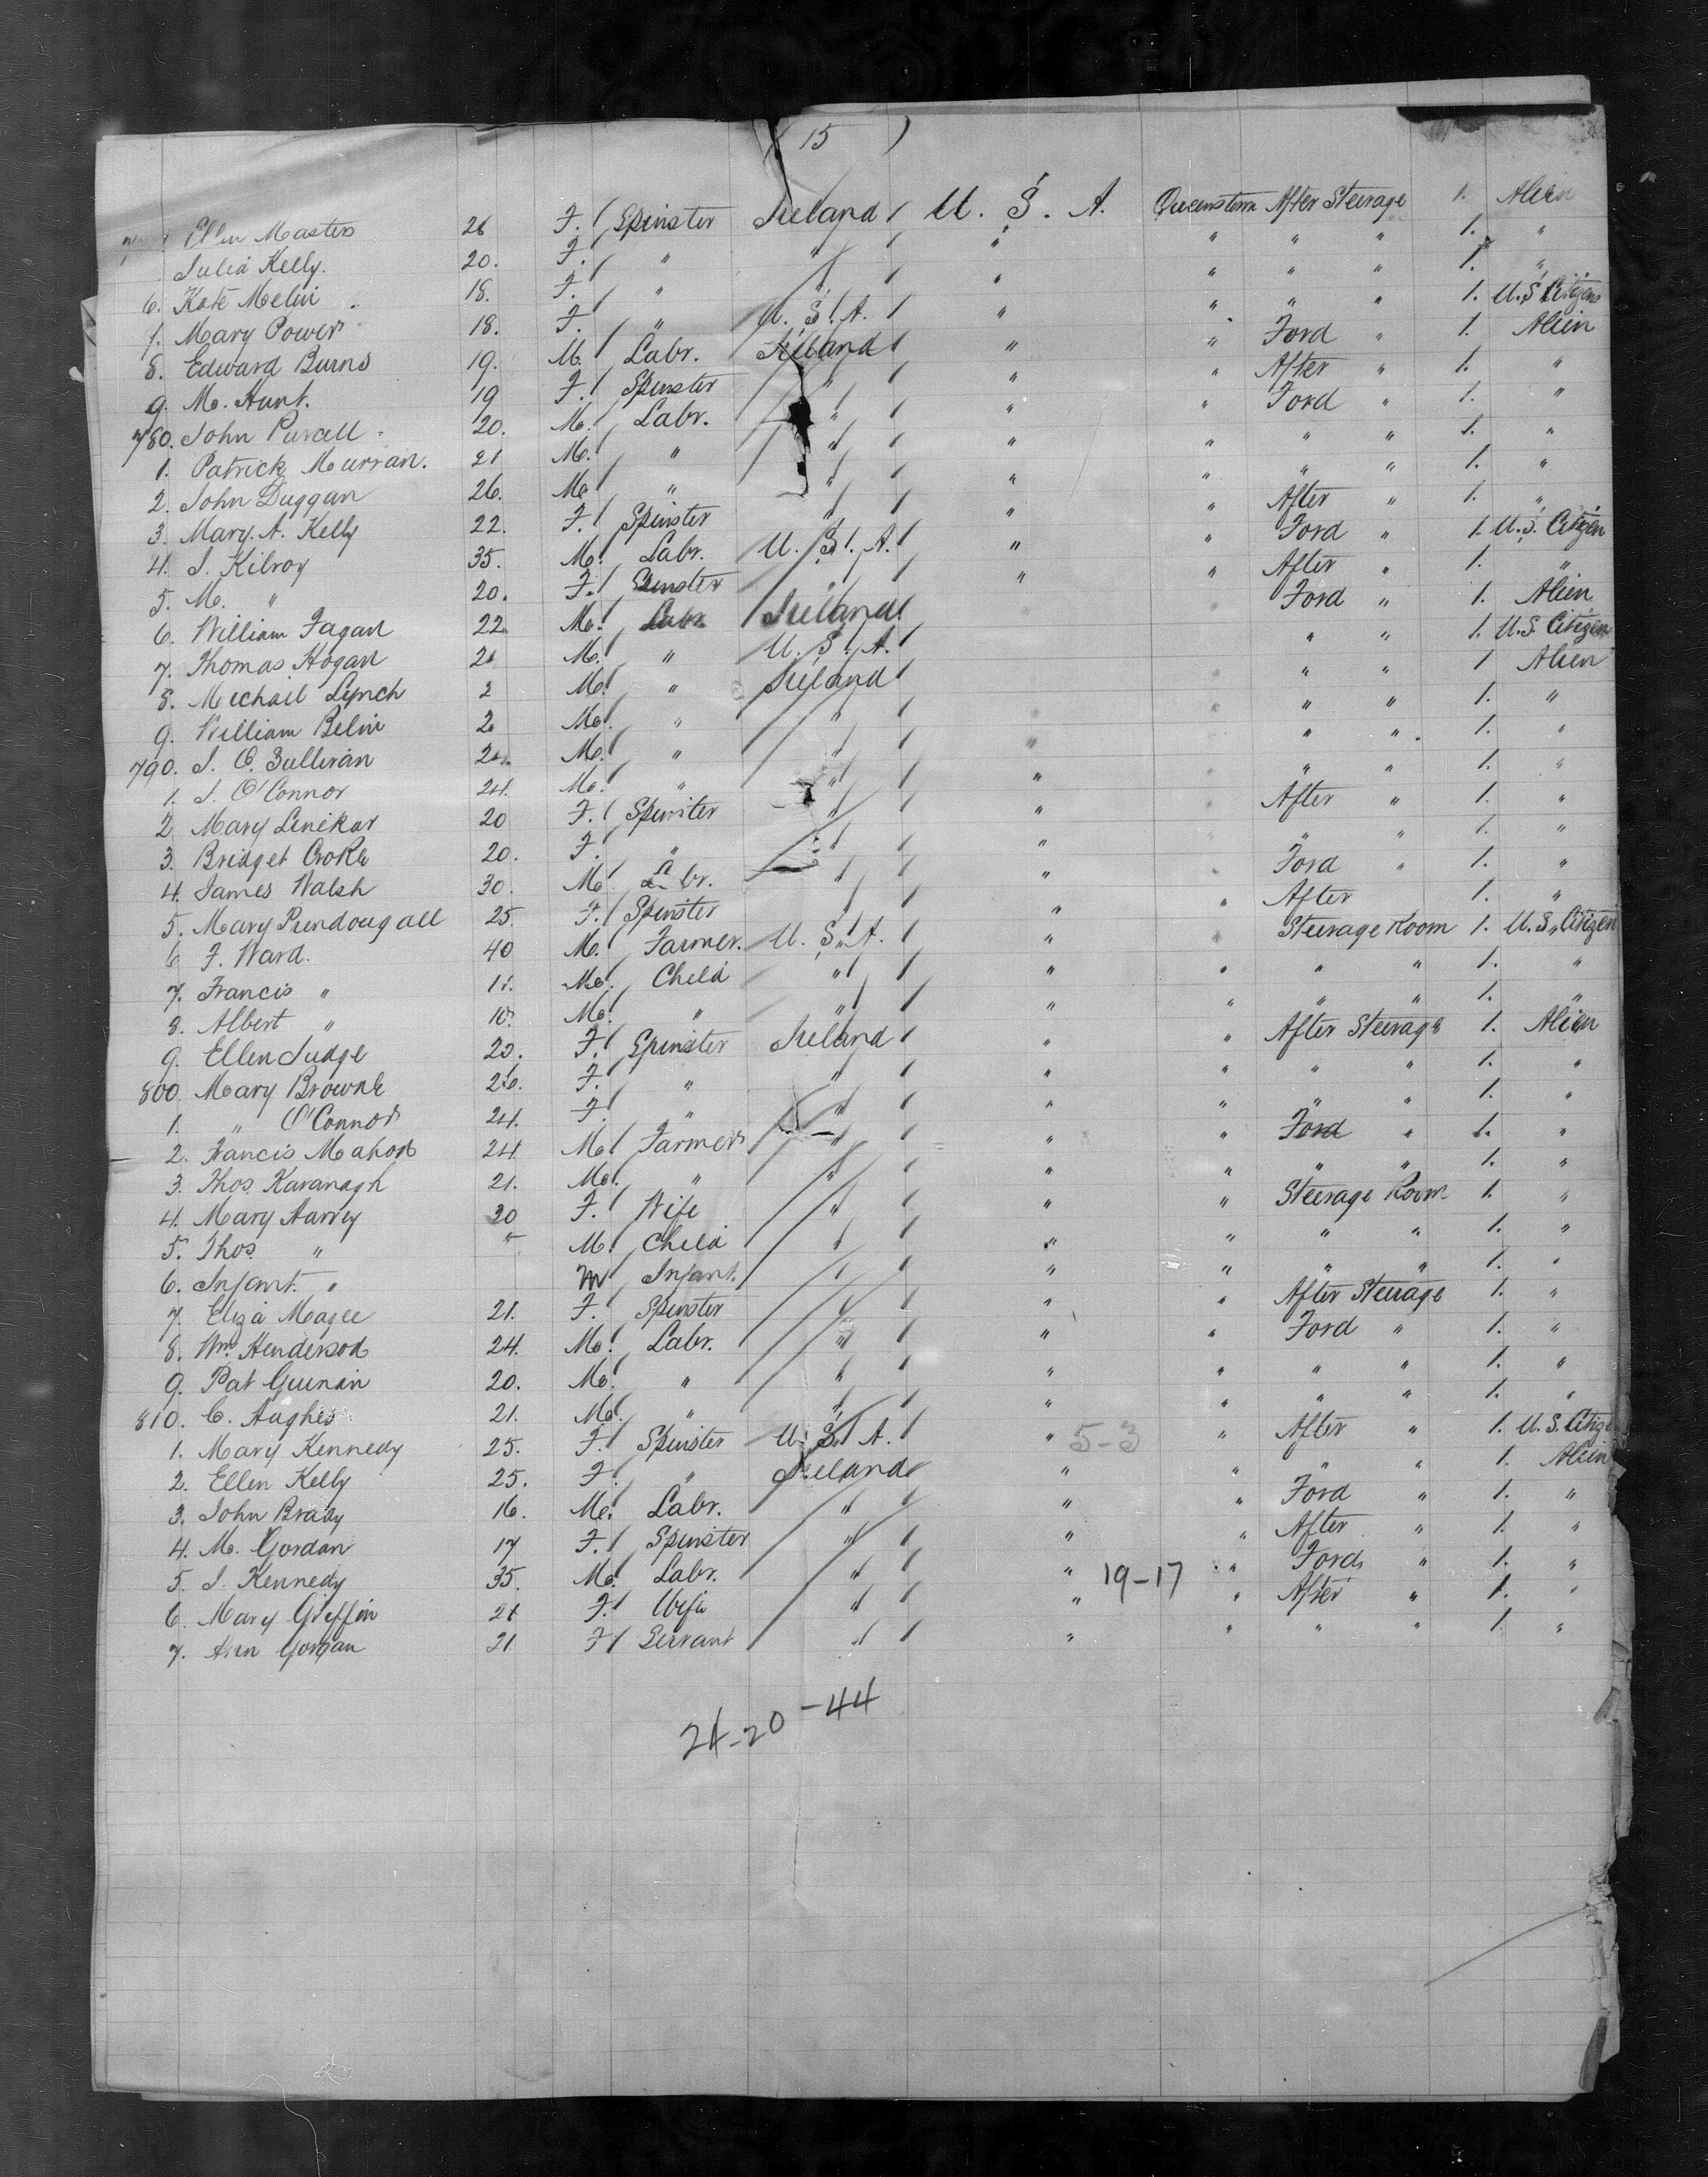 ( 15 )
Ellen Masters 26 F. Spinster Ireland U. S. A. Queenstown After Steerage 1. Alien
Julia Kelly. 20. F. " " " " " " 1. "
6. Kate Melin 18. F. " " " " " 1. "
7. Mary Power 18. F. " U. S. A. " " " " 1. U.S. Citizen
8. Edward Burns 19. M. Labr. Ireland " " Ford " 1. Alien
9. M. Hunt. 19 F. Spinster " " " After " 1. "
780. John Purcell 20. M. Labr. " " " Ford " 1. "
1. Patrick Murran. 21 M. " " " " " " 1. "
2. John Duggan 26. M. " " " " " " 1. "
3. Mary. A. Kelly 22. F. Spinster " " " After " 1. "
4. J. Kilroy 35. M. Labr. U. S. A. " " Ford " 1. U.S. Citizen
5. M. " 20. F. Spinster " " " After " 1. "
6. William Fagan 22 M. Labr Ireland Ford " 1. Alien
7. Thomas Hogan M. " U. S. A. " " 1. U.S. Citizen
8. Mechail Lynch 2 M. " Ireland " " 1 Alien
9. William Belin M. " " " " 1. "
790. J. O. Sullivan M. " " " " " 1. "
1. J. O'Connor 24. M. " " " " " 1. "
2 Mary Linekar 20 F. Spinster " " After " 1. "
3. Bridget Croke 20. F. " " " " " 1. "
4. James Walsh 30. M. Labr. " " Ford " 1. "
5. Mary Prendougall 25. F. Spinster " " " After 1. "
6 F. Ward. 40 M. Farmer. U. S. A. " " Steerage Room 1. U.S. Citizen
7. Francis " M. Child " " " " " 1. "
8. Albert " 10. M. " " " " " " 1. "
9. Ellen Judge 20. F. Spinster Ireland " " After Steerage 1. Alien
800. Mary Browne 26. F. " " " " " " 1. "
1. " O'Connor 24. F. " " " " " " 1. "
2. Francis Mahon 24 M. Farmer " " " Ford " 1. "
3. Thos. Kavanagh 21. M. " " " " " " 1. "
4. Mary Harvey 30 F. Wife " " " Steerage Room 1. "
5. Thos. " M. Child " " " " " 1. "
6. Infant. " M Infant. " " " " " 1. "
7. Eliza Magee 21. F. Spinster " " " After Steerage 1. "
8. Wm. Henderson 24. M. Labr. " " " Ford " 1. "
9. Pat Guinan 20. M. " " " " " " 1. "
810. C. Hughes 21. M. " " " " " " 1. "
1. Mary Kennedy 25. F. Spinster U. S. A. " 5-3 " After " 1. U.S. Citize
2. Ellen Kelly 25. F. " Ireland " " " " 1. Alien
3. John Brady 16. M. Labr. " " " Ford " 1. "
4. M. Gordan 17 F. Spinster " " " After " 1. "
5. J. Kennedy 35. M. Labr. " " 19-17 " Ford " 1. "
6. Mary Griffin 21 F. Wife " " " After " 1. "
7. Ann Gorgan 21 F. Servant " " " " " 1. "
24-20-44